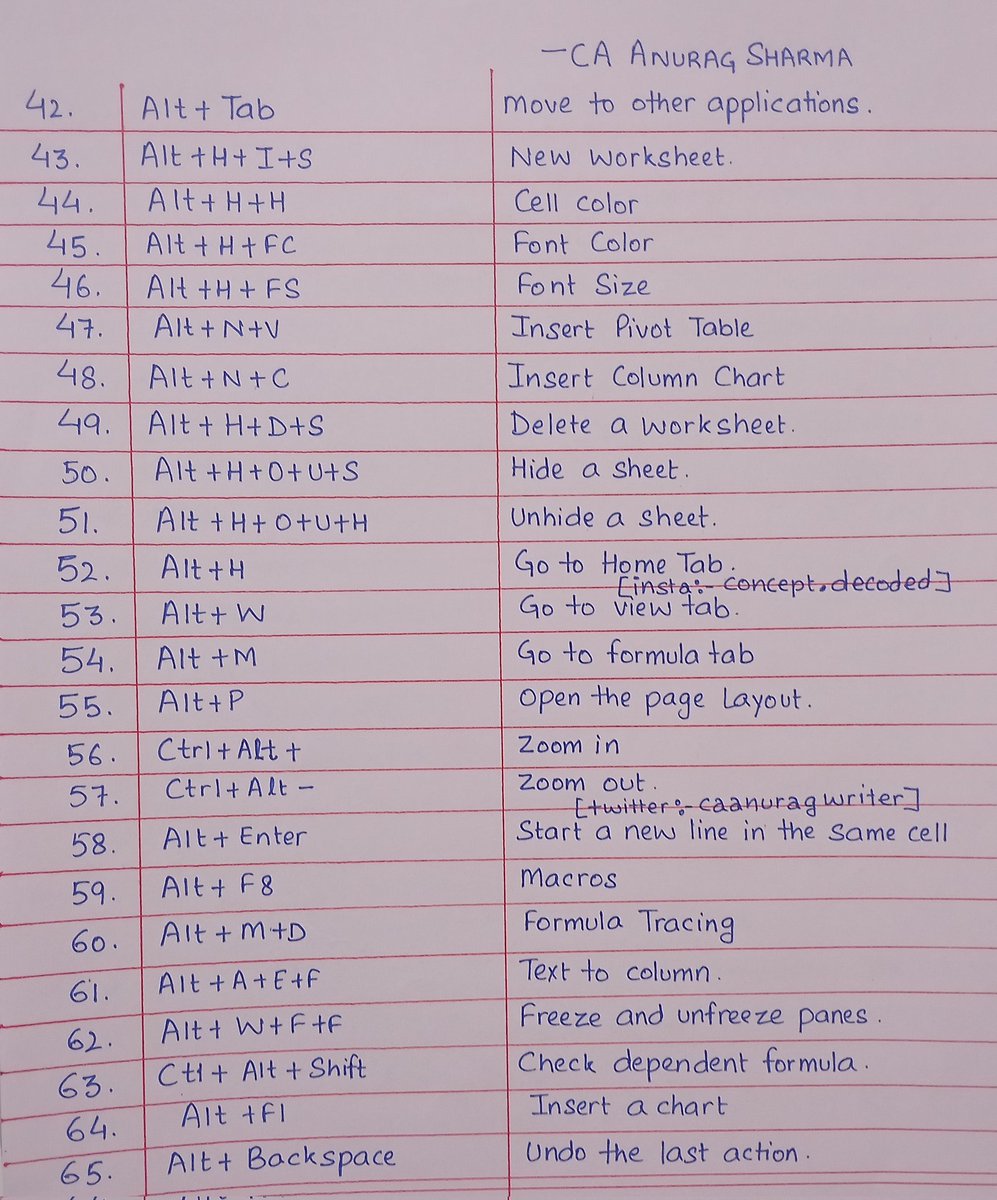 -CA ANURAG SHARMA
42. Alt + Tab move to other applications.
43. Alt +H+I+S New worksheet.
44. Alt+H+H Cell color
45. Alt + H + FC Font Color
46. Alt +H+ FS Font Size
47. Alt+N+V Insert Pivot Table
48. Alt+N+C Insert Column Chart
49. Alt + H+D+S Delete a worksheet.
50. Alt +H+O+U+S Hide a sheet.
51. Alt +H+O+U+H Unhide a sheet.
52. Alt+H Go to Home Tab.
[insta:- concept.decoded]
53. Alt+W Go to view tab.
54. Alt +M Go to formula tab
55. Alt+P Open the page Layout.
56. Ctrl+Alt + Zoom in
57. Ctrl+Alt - Zoom out.
[twitter:- caanuragwriter]
58. Alt+ Enter Start a new line in the same cell
59. Alt+ F8 Macros
60. Alt +M+D Formula Tracing
61. Alt +A+E+F Text to column.
62. Alt+ W+F+F Freeze and unfreeze panes.
63. Ctl+ Alt + Shift Check dependent formula.
64. Alt +F1 Insert a chart
65. Alt+ Backspace Undo the last action.